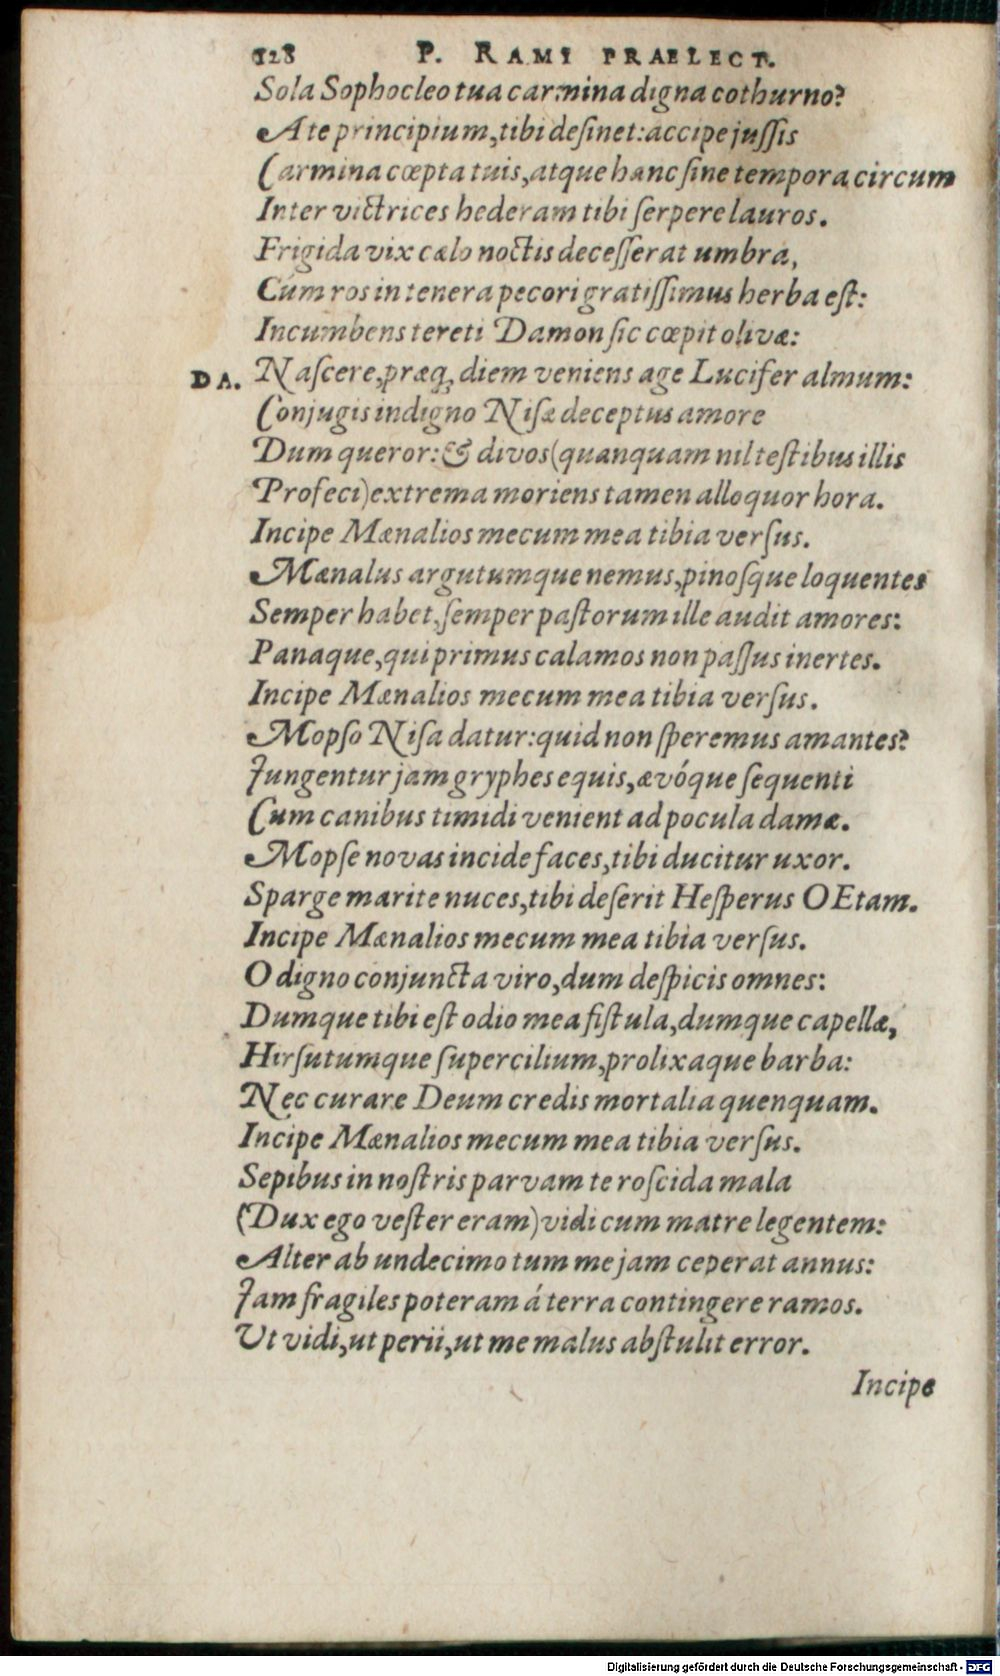 128 P. RAMI PRAELECT.
Sola Sophocleo tua carmina digna cothurno?
A te principium, tibi desinet: accipe jussis
Carmina cœpta tuis, atque hanc sine tempora circum
Inter victrices hederam tibi serpere lauros.
Frigida vix cælo noctis decesserat umbra,
Cúm ros in tenera pecori gratissimus herba est:
Incumbens tereti Damon sic cœpit olivæ:
DA. Nascere, præq; diem veniens age Lucifer almum:
Conjugis indigno Nisæ deceptus amore
Dum queror: & divos (quanquam nil testibus illis
Profeci) extrema moriens tamen alloquor hora.
Incipe Mænalios mecum mea tibia versus.
Mænalus argutumque nemus, pinosque loquentes
Semper habet, semper pastorum ille audit amores:
Panaque, qui primus calamos non passus inertes.
Incipe Mænalios mecum mea tibia versus.
Mopso Nisa datur: quid non speremus amantes?
Jungentur jam gryphes equis, ævóque sequenti
Cum canibus timidi venient ad pocula damæ.
Mopse novas incide faces, tibi ducitur uxor.
Sparge marite nuces, tibi deserit Hesperus OEtam.
Incipe Mænalios mecum mea tibia versus.
O digno conjuncta viro, dum despicis omnes:
Dumque tibi est odio mea fistula, dumque capellæ,
Hirsutumque supercilium, prolixaque barba:
Nec curare Deum credis mortalia quenquam.
Incipe Mænalios mecum mea tibia versus.
Sepibus in nostris parvam te roscida mala
(Dux ego vester eram) vidi cum matre legentem:
Alter ab undecimo tum me jam ceperat annus:
Jam fragiles poteram á terra contingere ramos.
Ut vidi, ut perii, ut me malus abstulit error.
Incipe
Digitalisierung gefördert durch die Deutsche Forschungsgemeinschaft - DFG